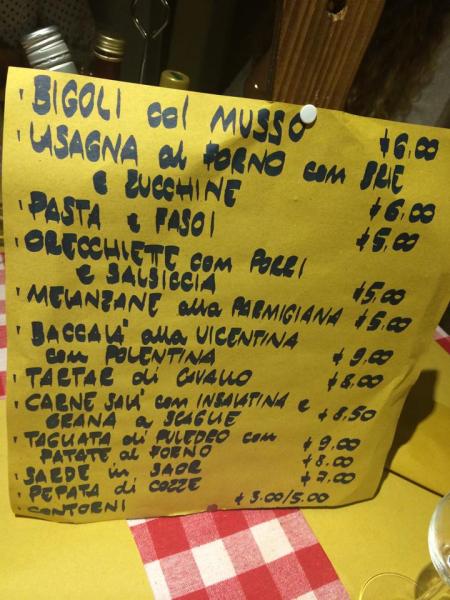 · BIGOLI col MUSSO € 6,00
· LASAGNA al FORNO com BRIE
e ZUCCHINE € 6,00
· PASTA e FASOI € 5,00
· ORECCHIETE com PORRI
e SALSICCIA € 5,00
· MELANZANE alla PARMIGIANA € 5,00
· BACCALA' alla VICENTINA
com POLENTINA € 9,00
· TARTAR di CAVALLO € 8,00
· CARNE SALA' com INSALATINA e
GRANA a SCAGLIE € 8,50
· TAGLIATA di PULEDRO com
PATATE al FORNO € 9,00
· SARDE in SAOR € 8,00
· PEPATA di COZZE € 7,00
· CONTORNI € 3,00/5,00